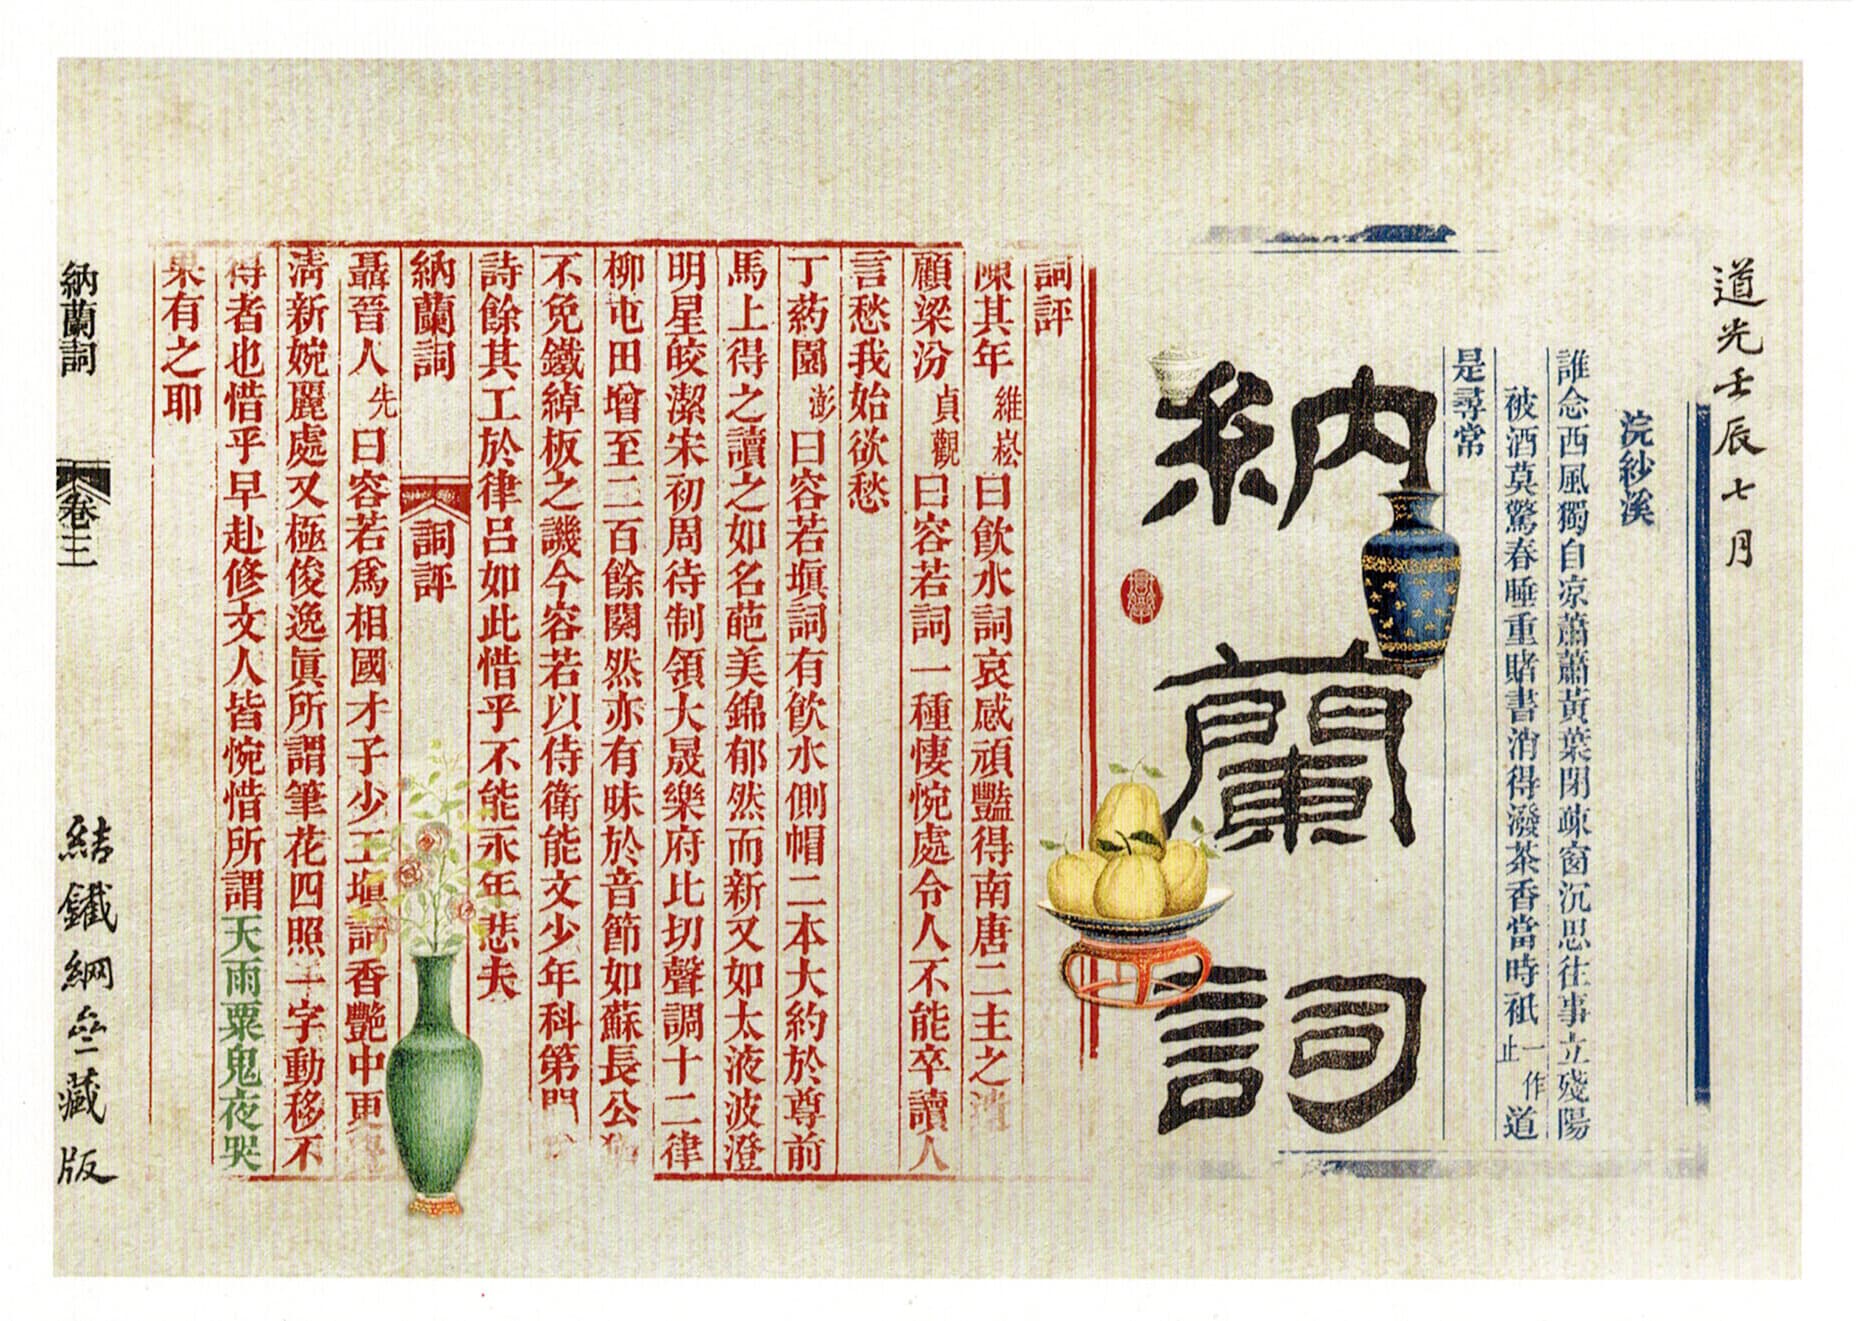 道光壬辰七月
浣紗溪
誰念西風獨自凉蕭蕭黃葉閉疎窗沉思往事立殘陽
被酒莫驚春睡重賭書消得潑茶香當時祇一作止道
是尋常
納蘭詞
詞評
陳其年維崧曰飲水詞哀感頑豔得南唐二主之遺
顧梁汾貞觀曰容若詞一種悽惋處令人不能卒讀人
言愁我始欲愁
丁葯園澎曰容若塡詞有飲水側帽二本大約於尊前
馬上得之讀之如名葩美錦郁然而新又如太液波澄
明星皎潔宋初周待制領大晟樂府比切聲調十二律
柳屯田增至二百餘闋然亦有昧於音節如蘇長公猶
不免鐵綽板之譏今容若以侍衛能文少年科第門
詩餘其工於律呂如此惜乎不能永年悲夫
納蘭詞 詞評
聶晉人先曰容若爲相國才子少工塡詞香艷中更
淸新婉麗處又極俊逸眞所謂筆花四照一字動移不
得者也惜乎早赴修文人皆惋惜所謂天雨粟鬼夜哭
果有之耶
納蘭詞 卷三
結鐵網亝藏版